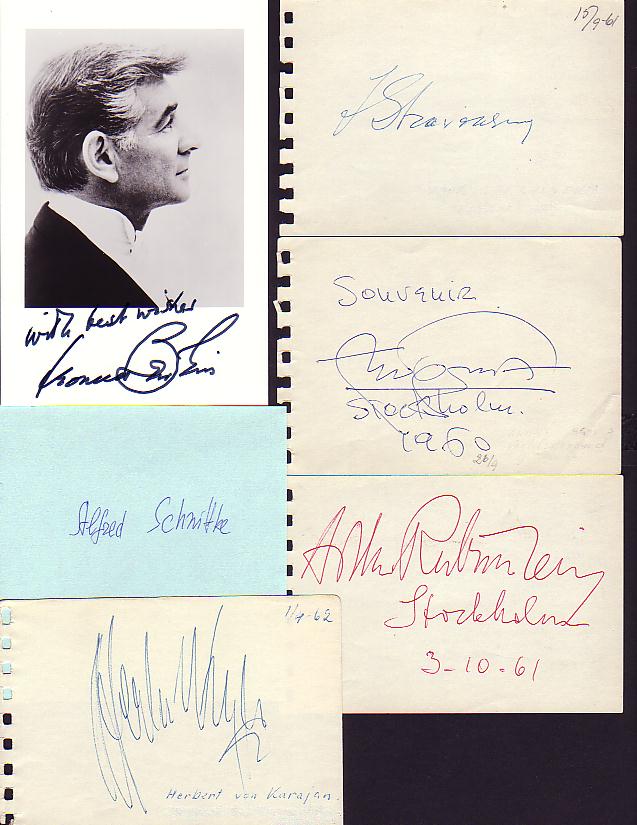 with best wishes
Leonard Bernstein
15/9-61
I Stravinsky
Souvenir
Stockholm.
1960
26/9
Alfred Schnittke
Arthur Rubinstein
Stockholm
3-10.61
1/4-62
Herbert von Karajan.